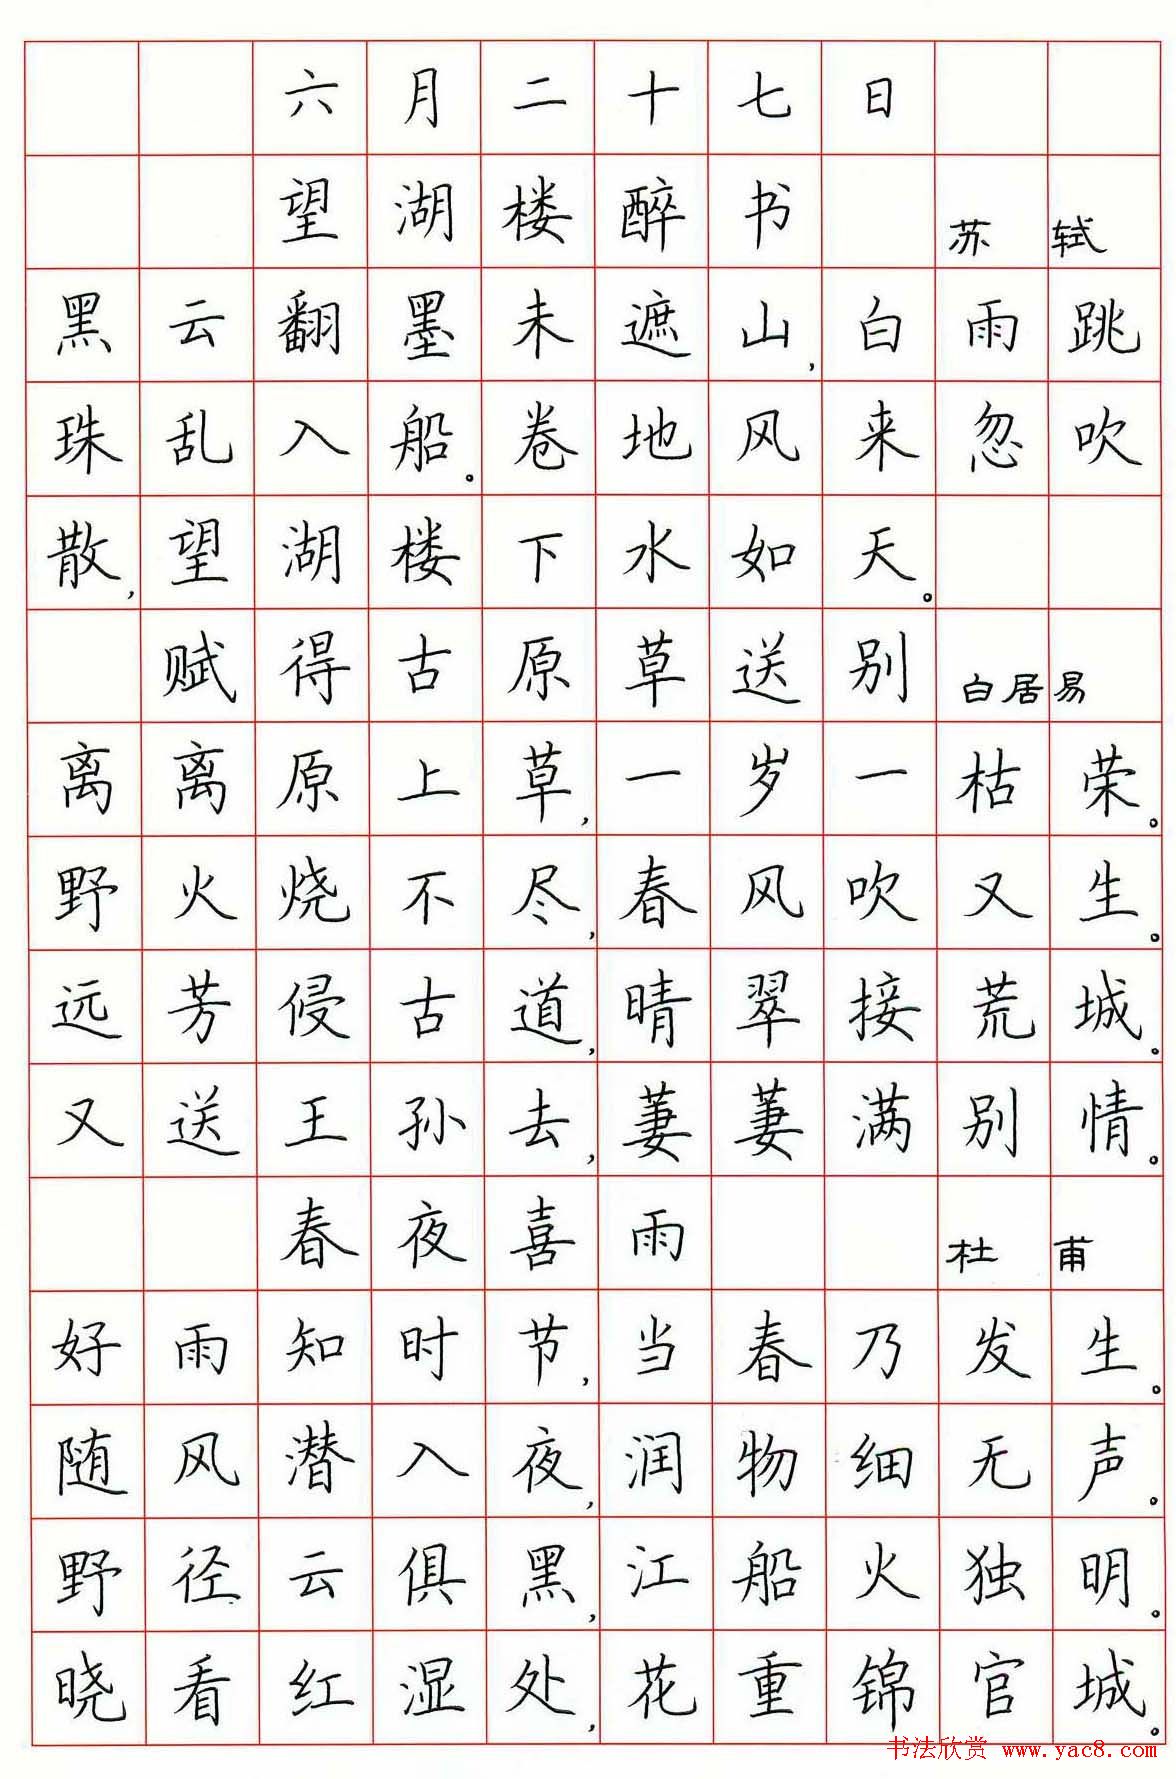 六月二十七日
望湖楼醉书 苏轼
黑云翻墨未遮山,白雨跳
珠乱入船。卷地风来忽吹
散,望湖楼下水如天。
赋得古原草送别 白居易
离离原上草,一岁一枯荣。
野火烧不尽,春风吹又生。
远芳侵古道,晴翠接荒城。
又送王孙去,萋萋满别情。
春夜喜雨 杜甫
好雨知时节,当春乃发生。
随风潜入夜,润物细无声。
野径云俱黑,江船火独明。
晓看红湿处,花重锦官城。
书法欣赏 www.yac8.com